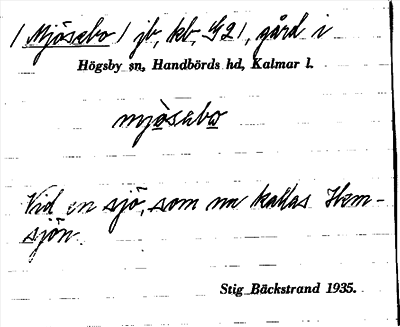 / Mjösebo / jb, kb, G21, gård i
Högsby sn, Handbörds hd, Kalmar l.
mjösebo
Vid en sjö, som nu kallas Hem-
sjön.
Stig Bäckstrand 1935.